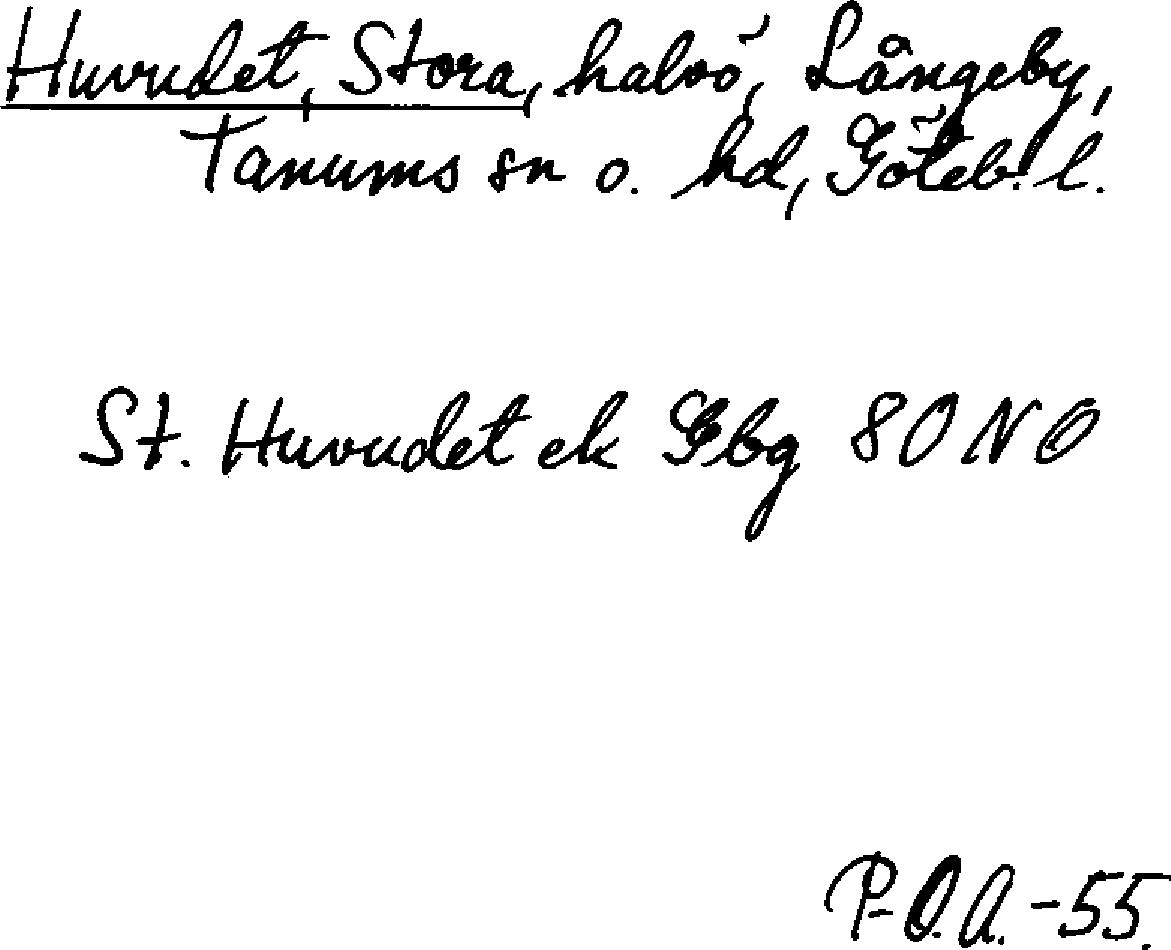 Huvudet, Stora, halvö, Långeby,
Tanums sn o. hd, Göteb. l.
St. Huvudet ek Gbg 80 NO
P-O.A.-55.